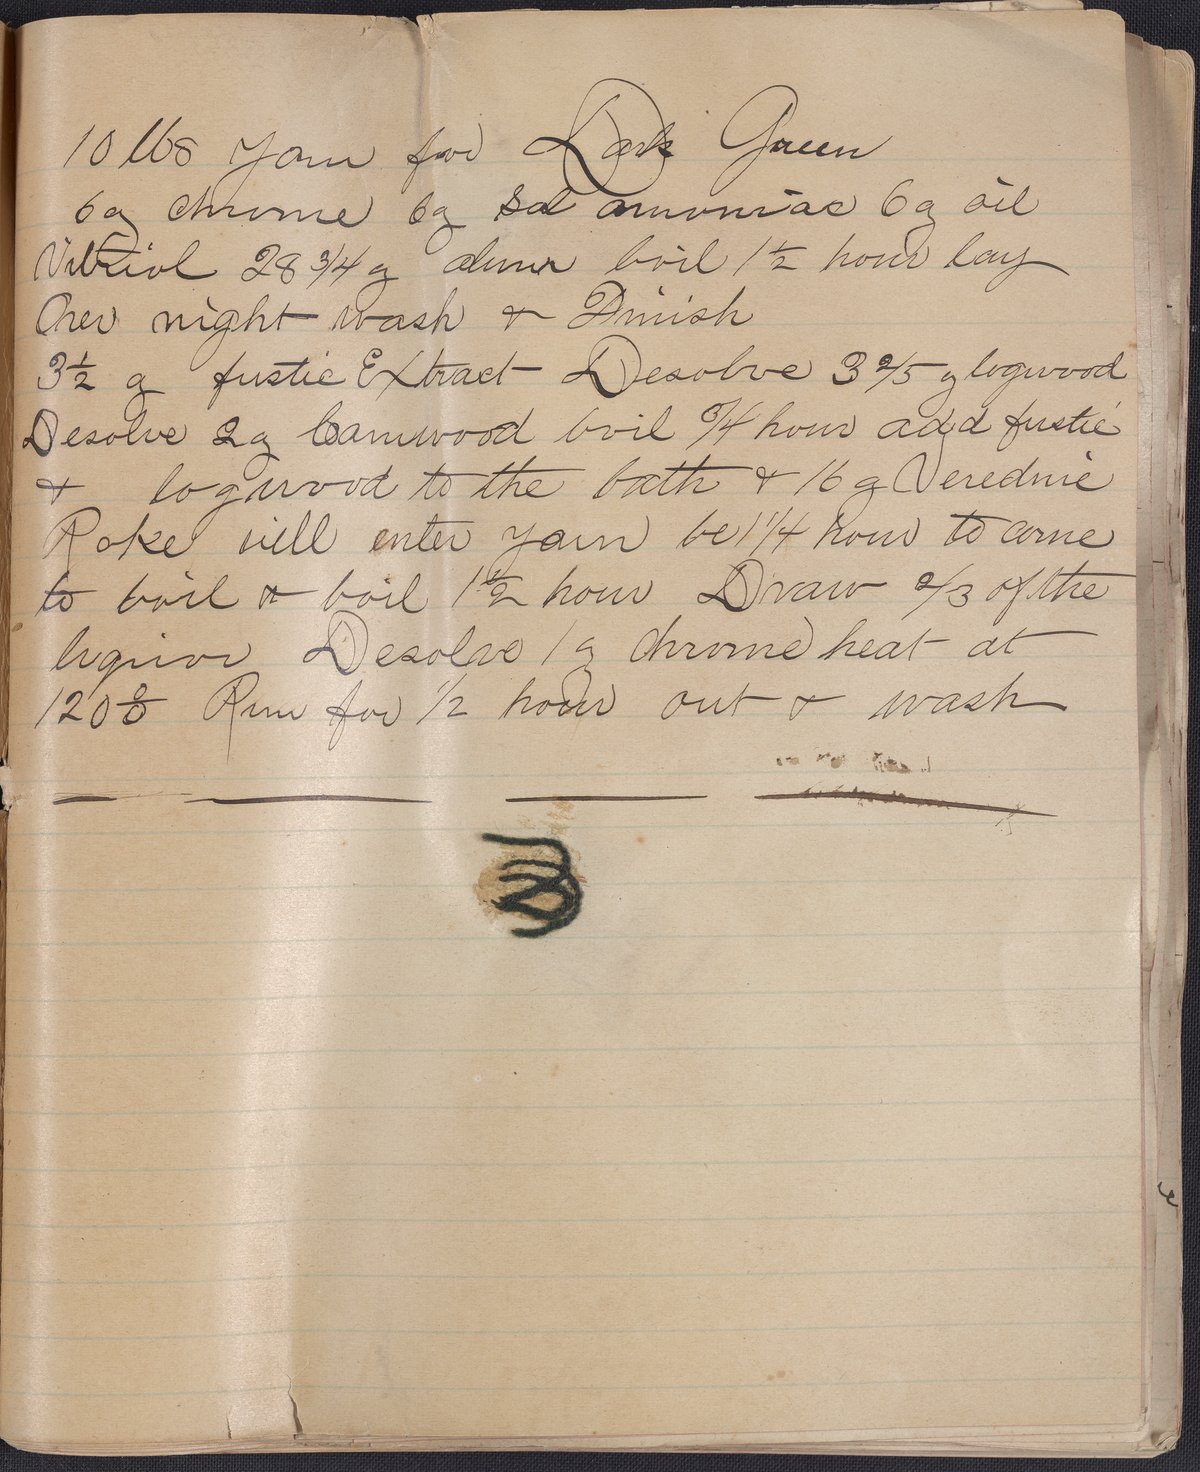 10 lbs Yarn for Dark Green
6 g chrome 6g Sal amoniac 6 g oil
Vitriol 28 3/4 g alum boil 1 1/2 hour lay
Over night wash & Finish
3 1/2 g fustic Extract Desolve 3 2/5 g logwood
Desolve 2g Camwood boil 3/4 hour add fustic
& logwood to the bath & 16 g Veredine
Rake well enter yarn be 1 1/4 hour to come
to boil & boil 1 1/2 hour Draw 2/3 of the
liquior Desolve 1 g chrome heat at
120 Run for 1/2 hour out & wash